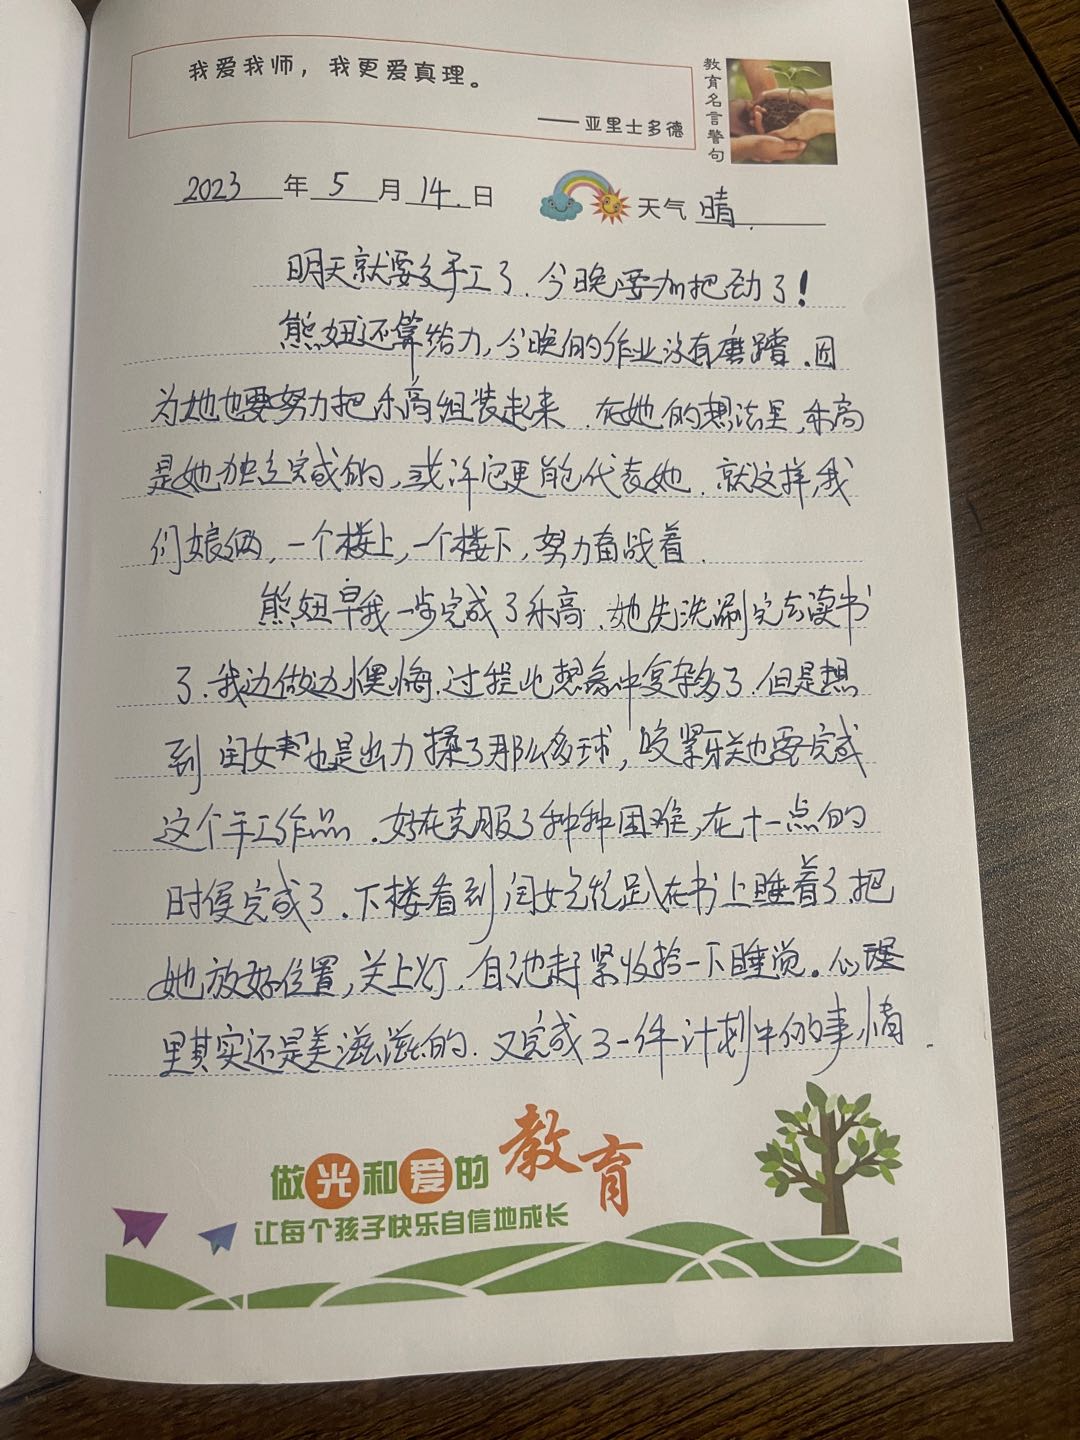 我爱我师，我更爱真理。
——亚里士多德
教育名言警句
2023年5月14日 天气 晴.
明天就要交手工了.今晚要加把劲了!
熊妞还算给力,今晚的作业没有磨蹭.因
为她也要努力把乐高组装起来.在她的想法里,乐高
是她独立完成的,或许它更能代表她.就这样,我
们娘俩,一个楼上,一个楼下,努力奋战着.
熊妞早我一步完成了乐高.她先洗涮完去读书
了.我边做边懊悔.过程比想象中复杂多了.但是想
到闺女也是出力揉了那么多球,咬紧牙关也要完成
这个手工作品.好在克服了种种困难,在十一点的
时候完成了.下楼看到闺女已经趴在书上睡着了.把
她放好位置,关上灯.自己也赶紧收拾一下睡觉。心理
里其实还是美滋滋的.又完成了一件计划中的事情.
做光和爱的教育
让每个孩子快乐自信地成长